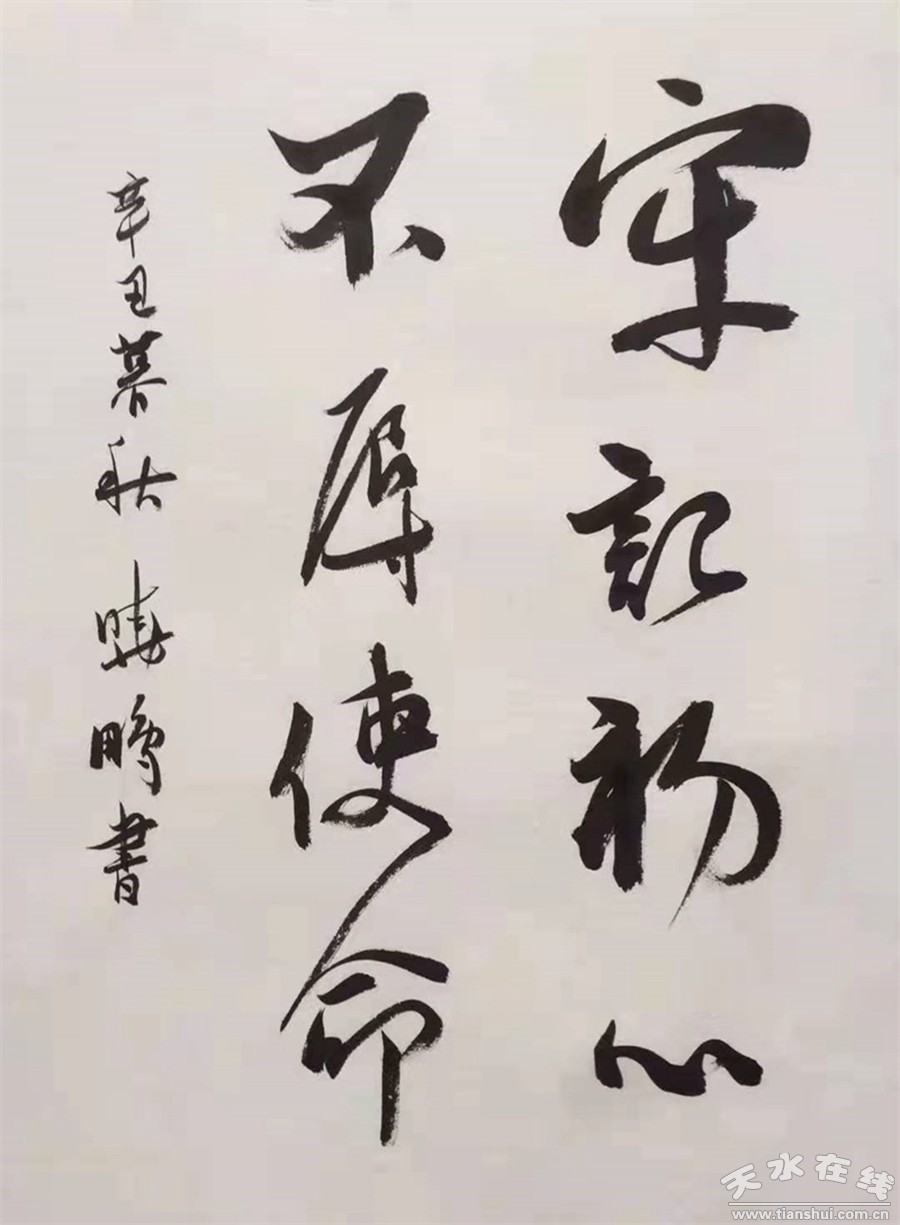 牢記初心
不辱使命
辛丑暮秋 曉鵬書
天水在线
www.tianshui.com.cn